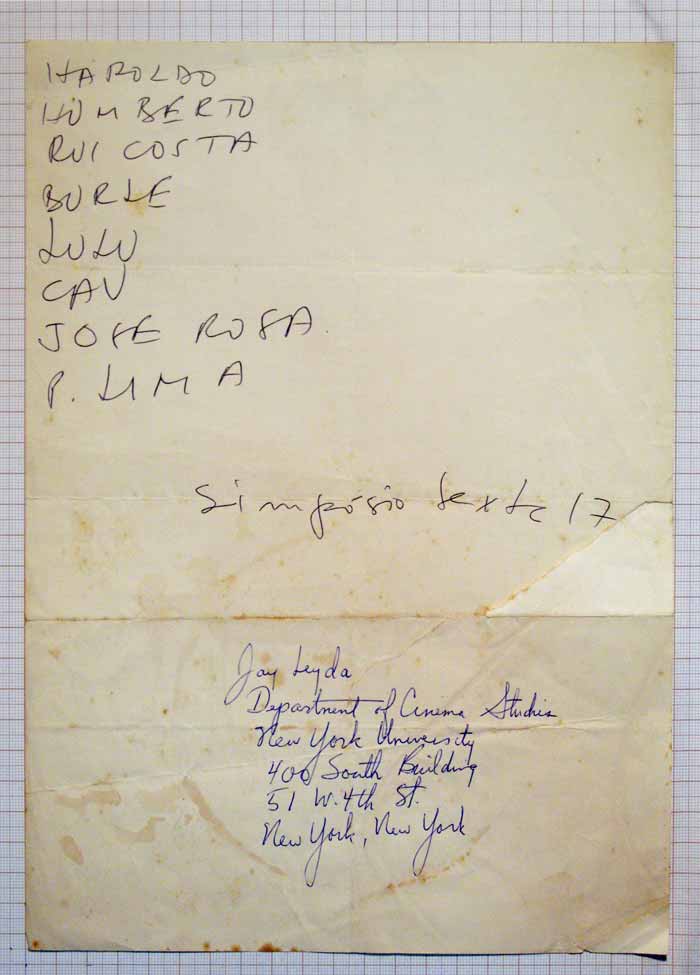 HAROLDO
HUMBERTO
RUI COSTA
BURLE
LULU
CAV
JOSE ROSA.
P. LIMA
Simpósio sexta 17
Jay Leyda
Department of Cinema Studies
New York University
400 South Building
51 W. 4th St.
New York, New York